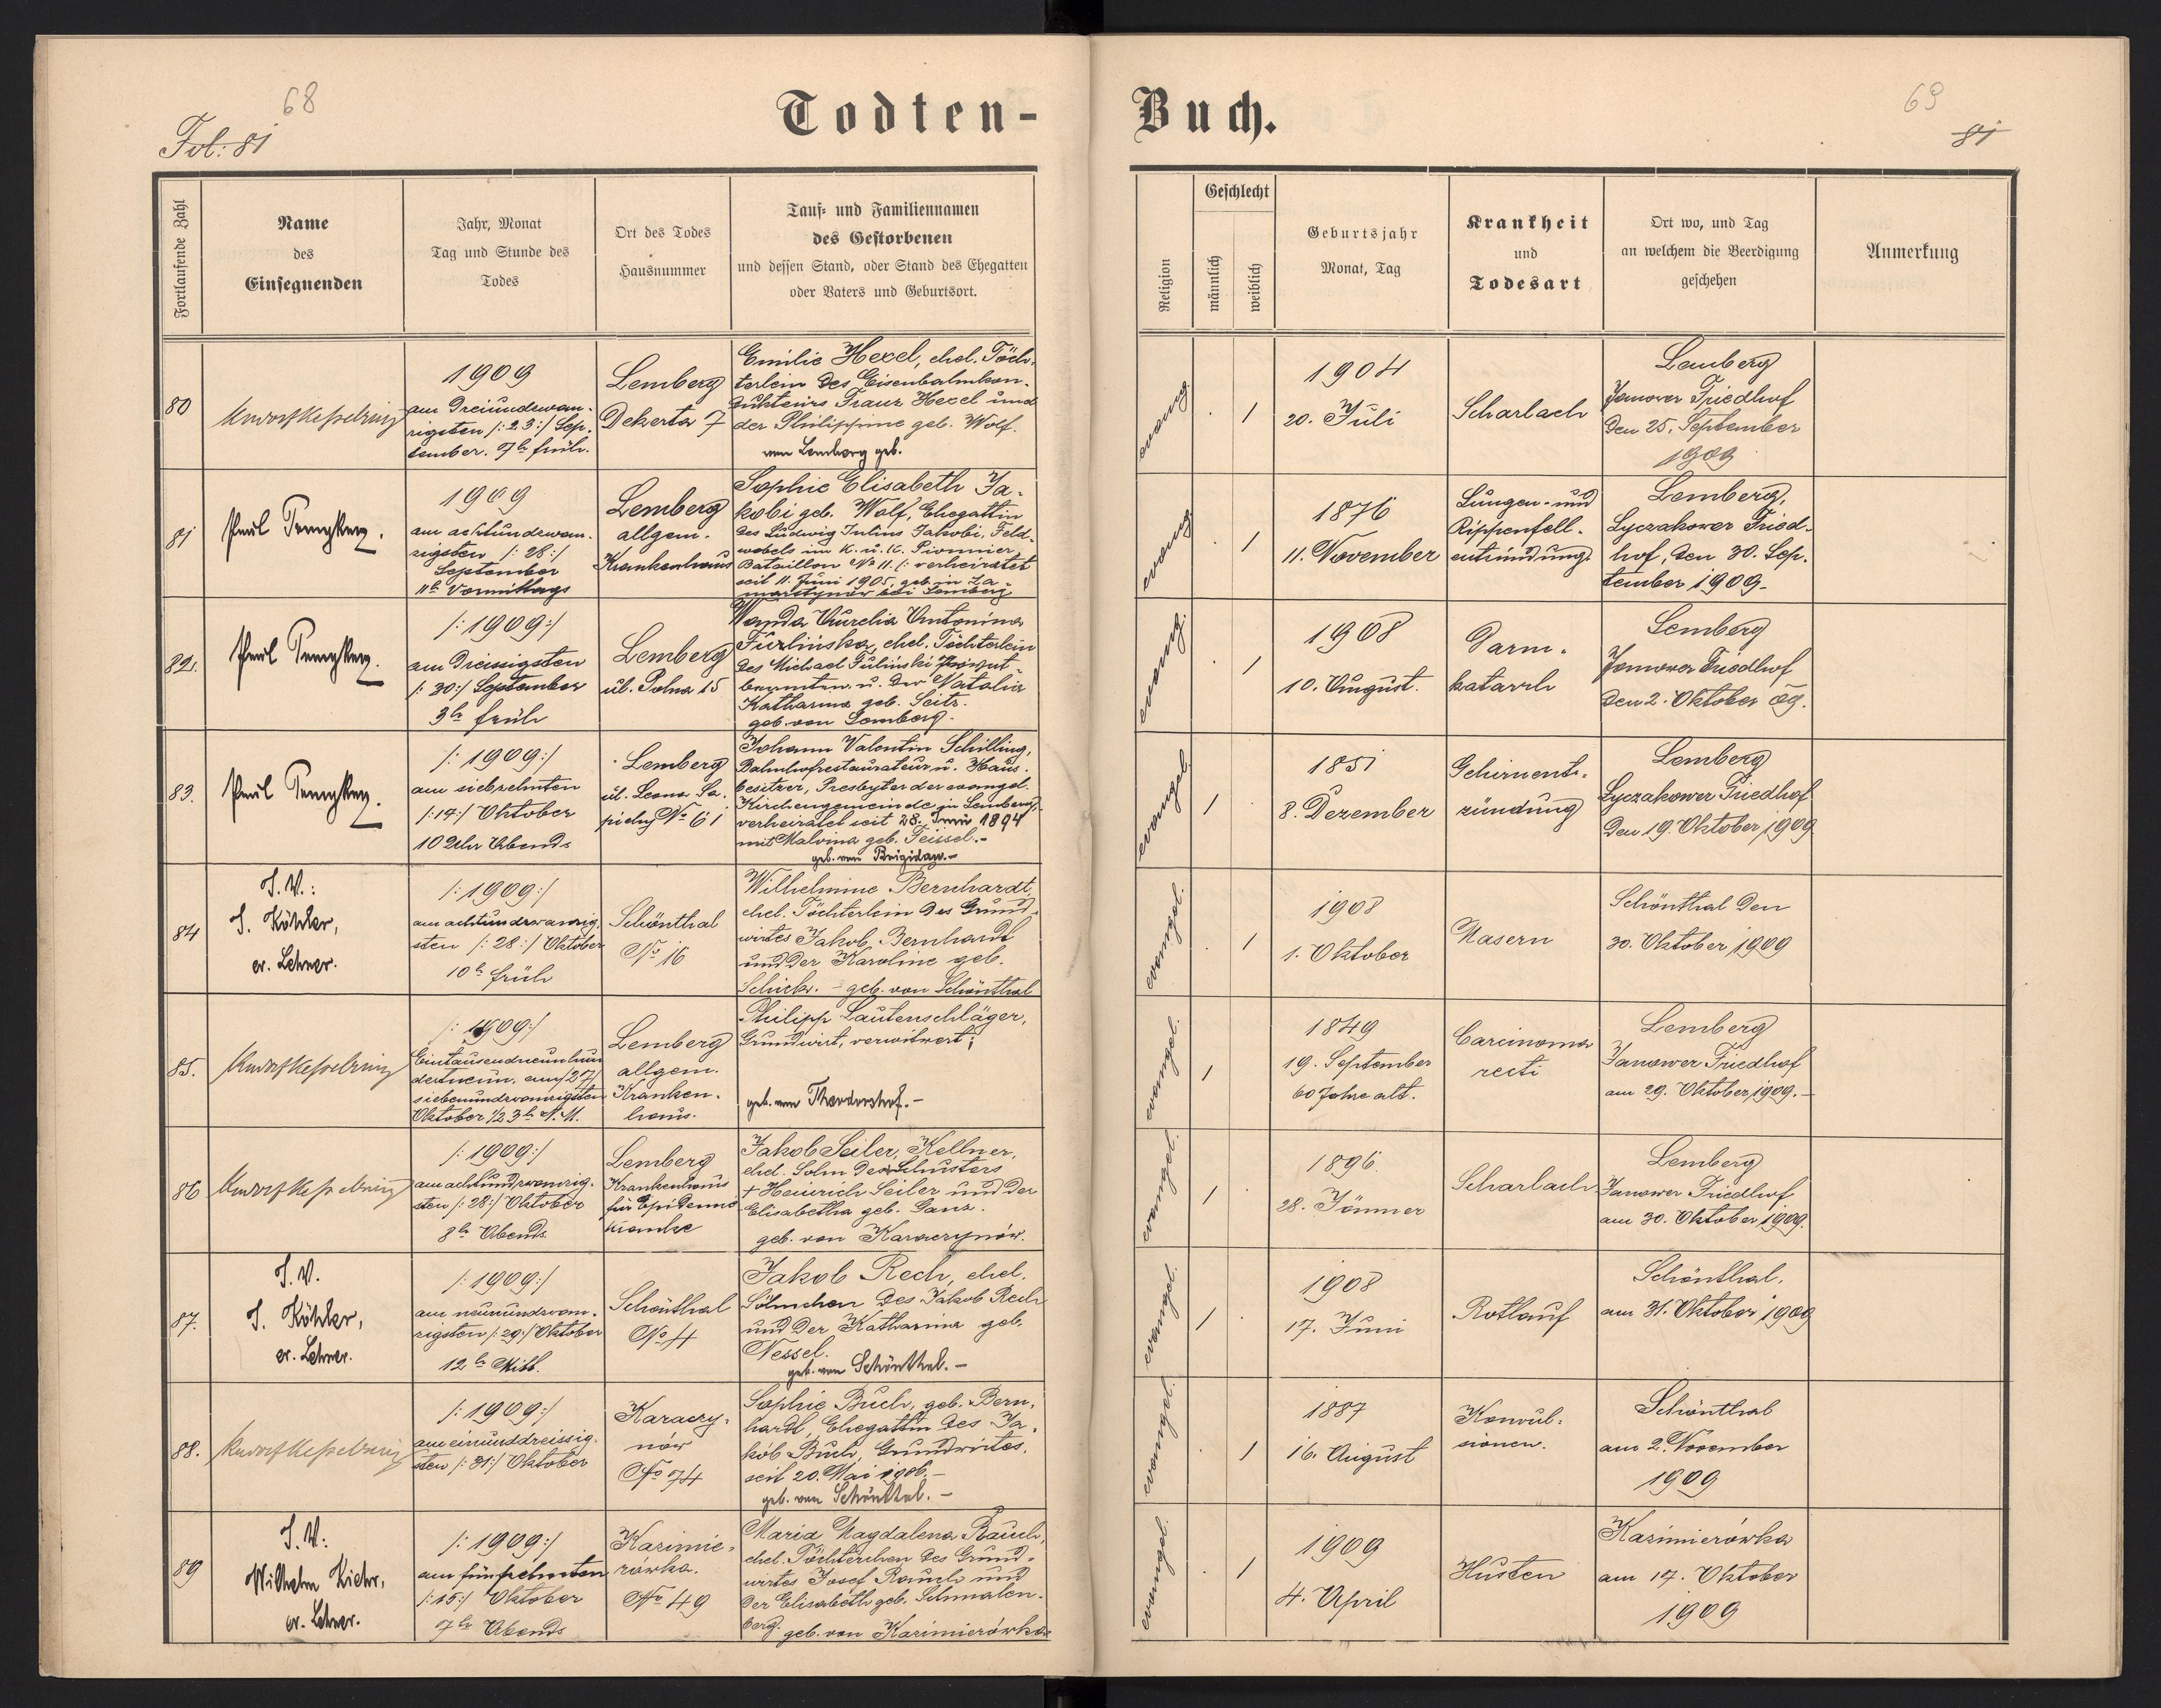 68
Fol: 81
Todten-
Fortlaufende Zahl
Name
des
Einsegnenden
Jahr, Monat
Tag und Stunde des
Todes
Ort des Todes
Hausnummer
Tauf= und Familiennamen
des Gestorbenen
und dessen Stand, oder Stand des Ehegatten
oder Vaters und Geburtsort.
80
1909
am dreiundzwan-
zigsten /: 23:/ Sep-
tember. 7h früh.
Lemberg
Dekerta 7
Emilie Hexel, ehel. Töch-
terlein des Eisenbahnkon-
dukteurs Franz Hexel und
der Philippine geb. Wolf.
von Lemberg geb.
81
Paul
1909
am achtundzwan-
zigsten /: 28:/
September
11h Vormittags
Lemberg
allgem.
Krankenhaus
Sophie Elisabeth Ja-
kobi geb. Wolf, Ehegattin
des Ludwig Julius Jakobi, Feld-
webels im K. u. K. Pionnier
Bataillon No 11. (: verheiratet
seit 11. Juni 1905, geb. in Za-
marstynów bei Lemberg
82.
Paul
/: 1909:/
am dreissigsten
/: 30:/ September
3h früh
Lemberg
ul. Polna 15
Wanda Aurelia Antonina
ehel. Töchterlein
des Michael Fulinski
beamten u. der Natalia
Katharina geb. Seitz.
geb. von Lemberg.
83.
Paul
/: 1909:/
am siebzehnten
/:17:/ Oktober
10 Uhr Abends
Lemberg
ul. Leona Sa-
piehy No 61
Johann Valentin Schilling,
Bahnhofrestaurateur u. Haus-
besitzer, Presbyter der evangel.
Kirchengemeinde zu Lemberg,
verheiratet seit 28. Juni 1894
mit Malvina geb. Teissel.-
geb. von Brigidau.-
84
I. V.:
J. Köhler,
ev. Lehrer.
/: 1909:/
am achtundzwanzig-
sten /: 28:/ Oktober
10h früh
Schönthal
No 16
Wilhelmine Bernhardt,
ehel. Töchterlein des Grund-
wirtes Jakob Bernhardt
und der Karoline geb.
Schick. - geb. von Schönthal
85.
/: 1909:/
Eintausendneunhun
dertneun, am /27/
siebenundzwanzigsten
Oktober 1/2 3h N. M.
Lemberg
allgem.
Kranken-
haus.
Philipp Lautenschläger,
Grundwirt, verwitwert;
geb. von Theodorshof.-
86
/: 1909:/
am achtundzwanzig-
sten /: 28:/ Oktober
8h Abends
Lemberg
Krankenhaus
für Epidemie
kranke
Jakob Seiler, Kellner,
ehel. Sohn des Schusters
+ Heinrich Seiler und der
Elisabetha geb. Ganz.
geb. von Karaczynów.
87.
I. V.
J. Köhler,
ev. Lehrer.
/: 1909:/
am neunundzwan-
zigsten /: 29:/ Oktober
12h Mitt.
Schönthal
No 4
Jakob Rech, ehel.
Söhnchen des Jakob Rech
und der Katharina geb.
Nessel.
geb. von Schönthal.-
88.
/: 1909:/
am einunddreissig-
sten /: 31:/ Oktober
Karaczy-
nów
No 74
Sophie Buch, geb. Bern-
hardt, Ehegattin des Ja-
kob Buch, Grundwirtes,
seit 20. Mai 1906.-
geb. von Schönthal.-
89
I. V:
Wilhelm
ev. Lehrer.
/: 1909:/
am fünfzehnten
/:15:/ Oktober
7h Abends
Kazimie-
rówka.
No 49
Maria Magdalena Rauch,
ehel. Töchterchen des Grund-
wirtes Josef Rauch und
der Elisabeth geb. Schmalen-
berg. geb. von Kazimierówka
69
81
Buch.
Religion
Geschlecht
männlich
weiblich
Geburtsjahr
Monat, Tag
Krankheit
und
Todesart
Ort wo, und Tag
an welchem die Beerdigung
geschehen
Anmerkung
evang.
. 1
1904
20. Juli
Scharlach
Lemberg
Janower Friedhof
den 25. September
1909
evang.
. 1
1876
11. November
Lungen- und
Rippenfell-
entzündung.
Lemberg,
Lyczakower Fried-
hof, den 30. Sep-
tember 1909.
evang.
. 1
1908
10. August.
Darm-
katarrh
Lemberg
Janower Friedhof
den 2. Oktober 09.
evangel.
1 .
1851
8. Dezember
Gehirnent-
zündung
Lemberg
Lyczakower Friedhof
den 19. Oktober 1909
evangel.
. 1
1908
1. Oktober
Masern
Schönthal den
30. Oktober 1909
evangel.
1
1849
19. September
60 Jahre alt.
Carcinoma
recti
Lemberg
Janower Friedhof
am 29. Oktober 1909.-
evangel.
1 .
1896.
28. Jänner
Scharlach
Lemberg
Janower Friedhof
am 30. Oktober 1909.
evangel.
1 .
1908
17. Juni
Rotlauf
Schönthal.
am 31. Oktober 1909
evangel.
. 1
1887
16. August
Konvul-
sionen.
Schönthal
am 2. November
1909
evangel.
. 1
1909
4. April
Husten
Kazimierówka
am 17. Oktober
1909